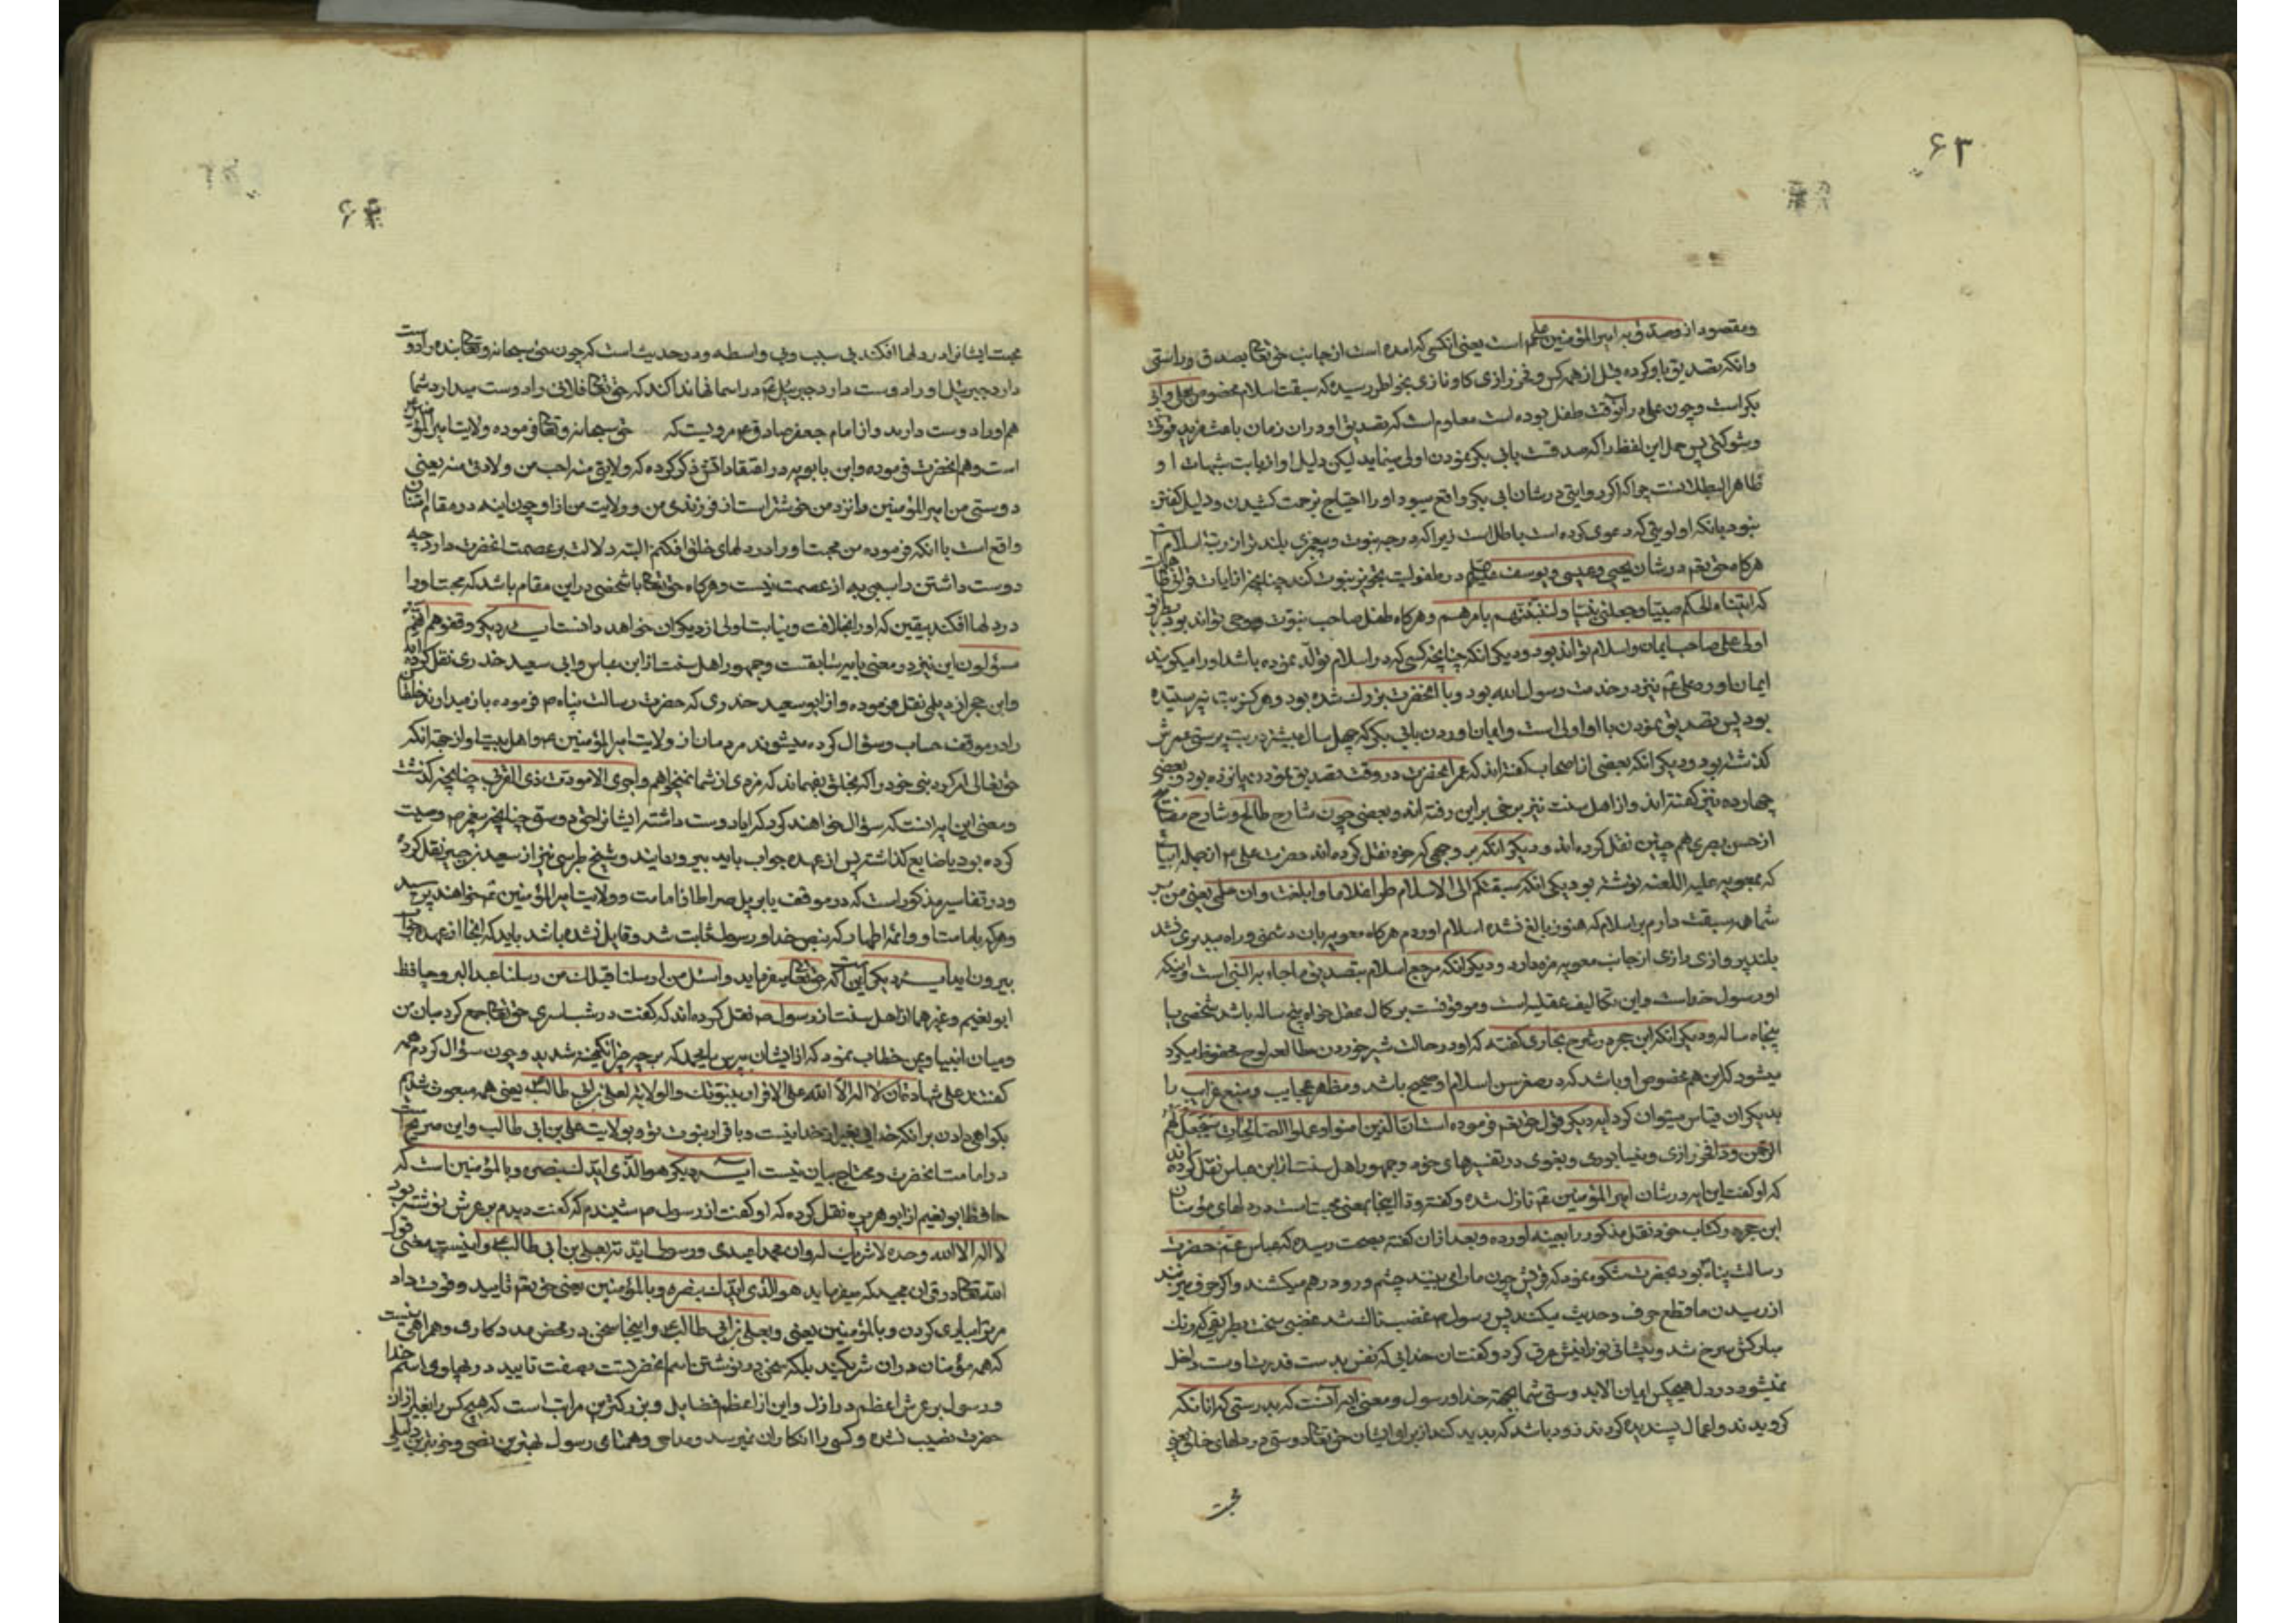 ۶۳
ومقصود از وصدق به امیر المؤمنین علیم است یعنی انکسی که امده است از جانب حق تعالی بصدق وراستی
وانکه تصدیق باو کرده قبل از همه کس و فخر رازی کاونازی بخواطر رسیده که سبقت اسلام مخصوص بعلی وابی
بکر است وچون علی در آنوقت طفل بوده است معلوم است که تصدیق او در ان زمان باعث مزید قوت
وشوکتی پس حمل این لفظ را که صدقت بابی بکر نمودن اولی مینماید لیکن دلیل او از بابت شبهات او
ظاهر البطلانست چرا که اگر روایتی در شان ابی بکر واقع میبود او را احتیاج بزحمت کشیدن ودلیل گفتن
نبود بانکه اولویتی که دعوی کرده است باطل است زیرا که درجه نبوت وپیغمبری بلند تر از رتبه اسلام است
هرکاه حق تعم در شان یحیی وعیسی ویوسف در طفولیت تجویز نبوت کند چنانچه از ایات
که اتیناه الحکم صبیا وجعلنی نبیا ولتنبئنهم بامرهم وهرکاه طفل صاحب نبوت ووحی تواند بود بطریق
اولی علی صاحب ایمان واسلام تواند بود ودیکر انکه چنانچه کسی که در اسلام تولد نموده باشد اورا میکویند
ایمان اورد علی نیز در خدمت رسول الله بود وبا انحضرت بزرك شده بود وهرکز بت نپرستیده
بود پس تصدیق نمودن با او اولی است وایمان اوردن بابی بکر که چهل سال بیشتر در بت پرستی عمرش
کذشته بود ودیکر انکه بعضی از اصحاب کفته اند که عمر انحضرت در وقت تصدیق نمودن پانزده بود وبعضی
چهارده نیز کفته اند واز اهل سنت نیز برخی بر این رفته اند وبعضی چون شارح طالع وشارح
از حسن بصری هم چنین نقل کرده اند ودیکر انکه بر وجهی که خود نقل کرده اند حضرت علی از جمله ابیات
که بمعویه علیه اللعنه نوشته بود یکی انکه سبقتکم الی الاسلام طرا غلاما وابلغت وان علی یعنی من بر
شما همه سبقت دارم بر اسلام که هنوز بالغ نشده اسلام اوردم هرکاه معویه بان دشمنی وراه
بلند پروازی رازی از جانب معویه مزه دارد ودیکر انکه مرجع اسلام بتصدیق ماجاء به النبی است واینکه
او رسول خداست واین تکالیف عقلیه است وموقوفست بر کمال عقل خواه پنج ساله باشد شخصی یا
پنجاه ساله ودیکر انکه ابن حجر در شرح بخاری گفته که او در حالت شیر خوردن مطالعه لوح محفوظ میکرد
میشود که این هم مخصوص او باشد که در صغر سن اسلام او صحیح باشد ومظهر عجایب ومنبع غرایب را
بدیکران قیاس میتوان کرد ایه دیکر قول حق تعم فرموده است ان الذین امنوا وعملوا الصالحات سیجعل لهم
الرحمن ودا فخر رازی ونیشابوری وبغوی در تفسیرهای خود وجمهور اهل سنت از ابن عباس نقل کرده اند
که او کفت این ایه در شان امیر المؤمنین نازل شده وکفته ودا اینجا بمعنی محبت است در دلهای مؤمنان
ابن حجر در کتاب خود نقل مذکور را بعینه اورده وبعد از ان کفته بصحت رسیده که عباس عم حضرت
رسالت پناه بود بحضرت شکوه نمود که قریش چون ما را می بینند چشم ورو در هم میکشند واکر حرف میزنند
از رسیدن ما قطع حرف وحدیث میکنند پس رسول غضبناك شد غضبی سخت بطریقی که رنك
مبارکش سرخ شد وپیشانی نورانیش عرق کرد وکفت بان خدایی که نفس بدست قدرت اوست داخل
نمیشود در دل هیچکس ایمان الا بدوستی شما بجهة خدا ورسول ومعنی ایه آنست که بدرستی که انانکه
کرویدند واعمال پسندیده کردند زود باشد که پدید کند از برای ایشان حق تعالی دوستی در دلهای خلق یعنی
۶۴
محبت ایشانرا در دلها افکند بی سبب وبی واسطه ودر حدیث است که چون حق سبحانه وتعالی بنده را دوست
دارد جبرئیل او را دوست دارد جبرئیل در اسمانها ندا کند که حق تعالی فلانی را دوست میدارد شما
هم اورا دوست دارید واز امام جعفر صادق مرویست که حق سبحانه وتعالی فرموده ولایت امیر المؤمنین
است وهم انحضرت فرموده وابن بابویه در اعتقاداتش ذکر کرده که ولایتی منه احب من ولادتی منه یعنی
دوستی من امیر المؤمنین را نزد من خوشتر است از فرزندی من وولایت من از او وچون ایه در مقام امتنان
واقع است با انکه فرموده من محبت او را در دلهای خلق افکنم البته دلالت بر عصمت انحضرت دارد چه
دوست داشتن را سببی به از عصمت نیست وهرکاه حق تعالی با شخصی در این مقام باشد که محبت او را
در دلها افکند بیقین که او را بخلافت ونیابت اولی از دیکران خواهد دانست ایه دیکر وقفوهم انهم
مسؤلون این نیز در معنی بایه سابقست وجمهور اهل سنت از ابن عباس وابی سعید خدری نقل کرده اند
وابن حجر از دیلمی نقل فرموده واز ابو سعید خدری که حضرت رسالت پناه فرموده باز میدارند خلق
را در موقف حساب وسؤال کرده میشوند مردمان از ولایت امیر المؤمنین واهل بیت او از جهة انکه
حق تعالی امر کرد نبی خود را که بخلق بفهماند که مزدی از شما نمیخواهم واجری الا مودت ذی القربی چنانچه کذشت
ومعنی این ایه انست که سؤال خواهند کرد که ایا دوست داشته ایشانرا حق دوستی چنانچه پیغمبر وصیت
کرده بود یا ضایع کذاشته پس از عهده جواب باید بیرون ایند وشیخ طبرسی نیز از سعید بن جبیر نقل کرده
ودر تفاسیر مذکور است که در موقف یا بر پل صراط از امامت وولایت امیر المؤمنین خواهند پرسید
وهرکه بامامت او وائمه اطهار که بنص خدا ورسول ثابت شد وقایل نشده باشد باید که انجا از عهده جواب
بیرون اید ایه دیکر این است که حق تعالی میفرماید واسئل من ارسلنا قبلك من رسلنا عبد البر وحافظ
ابو نعیم وغیرهما از اهل سنت از رسول نقل کرده اند که کفت در شب اسری حق تعالی جمع کرد میان من
ومیان انبیا وبمن خطاب نمود که از ایشان بپرس یا محمد که بر چه چیز انکیخته شدید وچون سؤال کردم همه
گفتند علی شهادة ان لا اله الا الله علی الاقرار بنبوتك والولایة لعلی بن ابی طالب یعنی همه مبعوث شدیم
بکواهی دادن بر انکه خدایی بغیر از خدا نیست وباقرار نبوت تو وبولایت علی بن ابی طالب واین صریح است
در امامت انحضرت ومحتاج بیان نیست ایه دیکر هو الذی ایدك بنصره وبالمؤمنین است که
حافظ ابو نعیم از ابو هریره نقل کرده که او کفت از رسول شنیدم که کفت دیدم بر عرش نوشته بود
لا اله الا الله وحده لا شریك له وان محمدا عبدی ورسولی ایدته بعلی بن ابی طالب واینست معنی قول
الله تعالی در قران مجید که میفرماید هو الذی ایدك بنصره وبالمؤمنین یعنی حق تعم تایید وقوت داد
مر ترا بیاری کردن وبالمؤمنین یعنی وبعلی بن ابی طالب واینجا سخن در محض مددکاری وهمراهی نیست
که همه مؤمنان در ان شریکند بلکه سخن در نوشتن اسم انحضرتست بصفت تایید در پهلوی اسم خدا
ورسول بر عرش اعظم در ازل واین از اعظم فضایل وبزرکترین مراتب است که هیچکس را بغیر از ان
حضرت نصیب نشده وکسی را انکار ان نمیرسد ومداحی وهمتای رسول بهترین نصی وخوبترین دلیلی